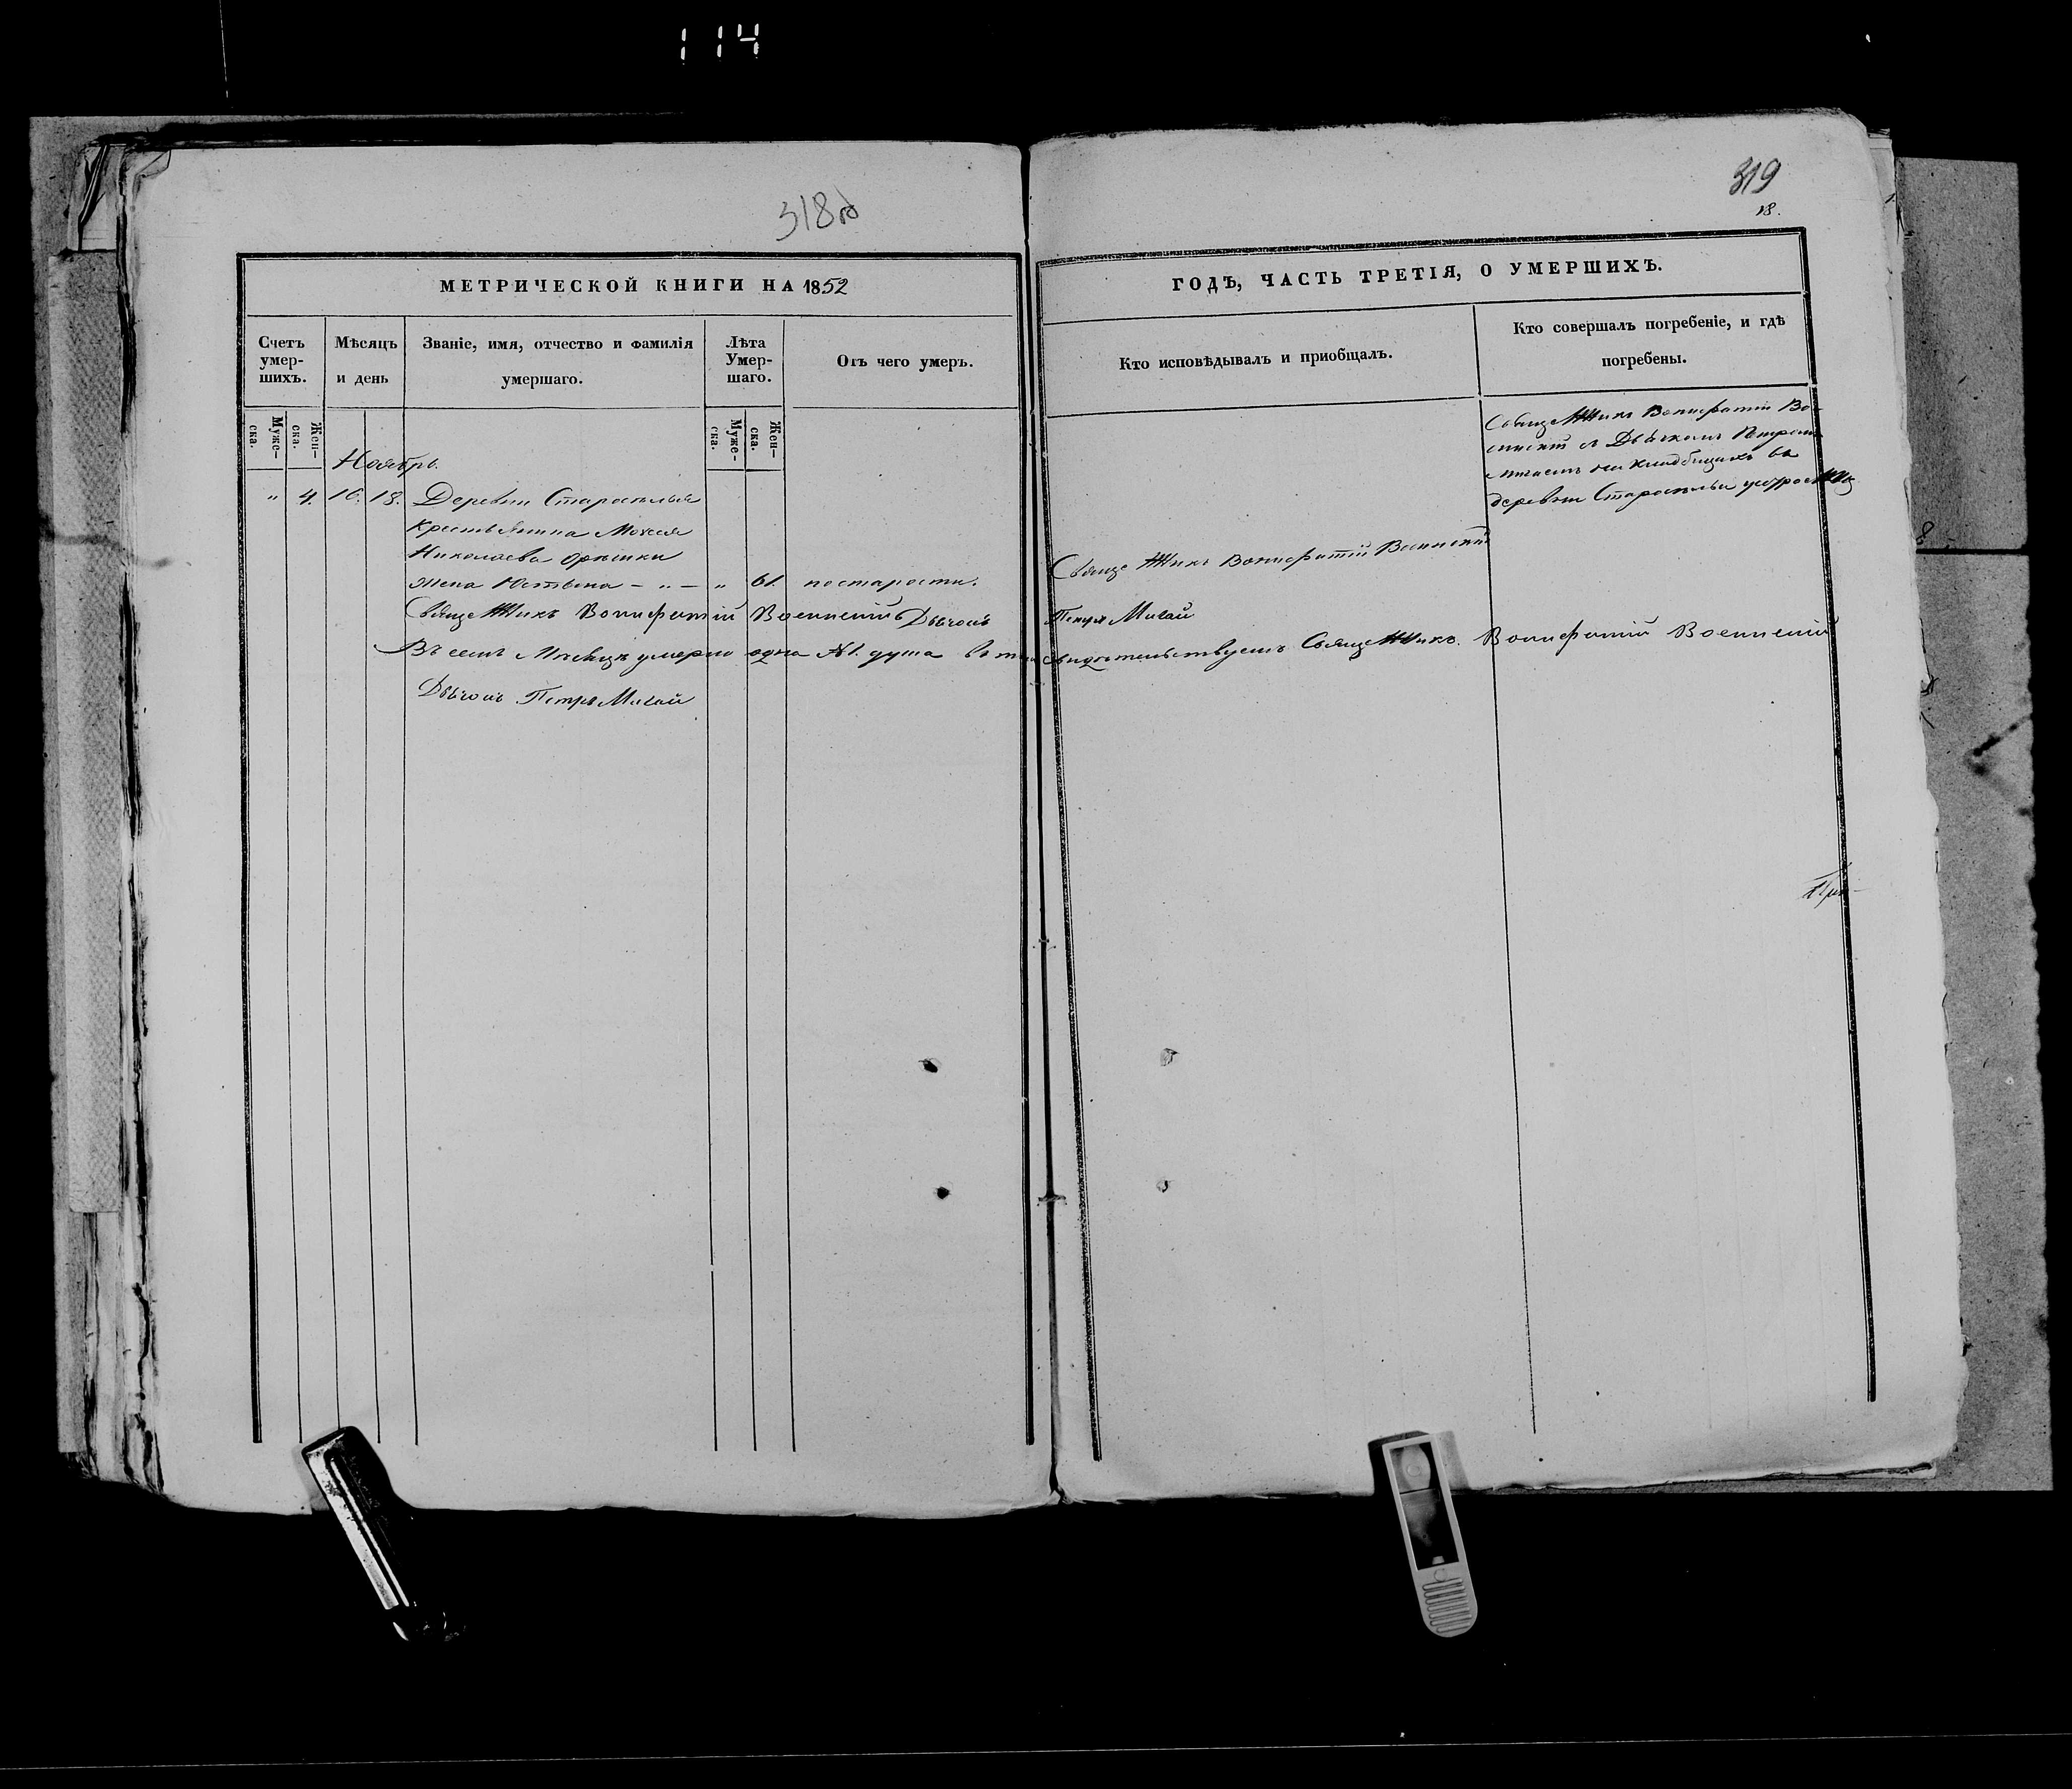 114
318об
319
18.
МЕТРИЧЕСКОЙ КНИГИ НА 1852
ГОДЪ, ЧАСТЬ ТРЕТІЯ, О УМЕРШИХЪ.
Счетъ умер-шихъ.
Мѣсяцъ и день
Званіе, имя, отчество и фамилія умершаго.
Лѣта Умер-шаго.
Отъ чего умеръ.
Кто исповѣдывалъ и пріобщалъ.
Кто совершалъ погребеніе, и гдѣ погребены.
Муже-ска.
Жен-ска.
Муже-ска.
Жен-ска.
Ноябрь.
" 4. 16. 18. Деревни Староселья
Крестьянина Моисея
Николаева Орѣшки
жена Устьяна - " - " 61. по старости.
Священникъ Вонифатій Воинскій
Священникъ Вонифатій Во-
инскій съ Дьячкомъ Петромъ
Мигаемъ на кладбищахъ въ
деревни Староселья
Священникъ Вонифатій Воинскій Дьячокъ Петръ Мигай
Въ семъ Мѣсяцѣ умерло одна №1. душа въ томъ свидѣтельствуемъ Священникъ Вонифатій Воинскій
Дьячокъ Петръ Мигай